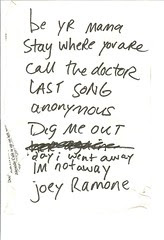 be yr mama
Stay where you are
call the doctor
LAST SONG
anonymous
Dig me out
day i went away
im not away
joey Ramone